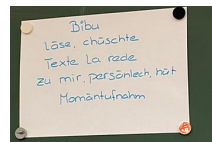 Bibu
läse, chüschte
Texte la rede
zu mir, persönlech, hüt
Momäntufnahm